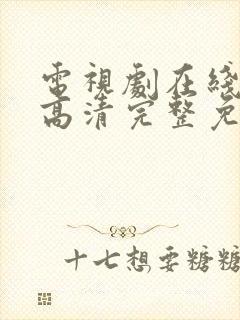 電視劇在綫
高清完整免
十七想要糖糖